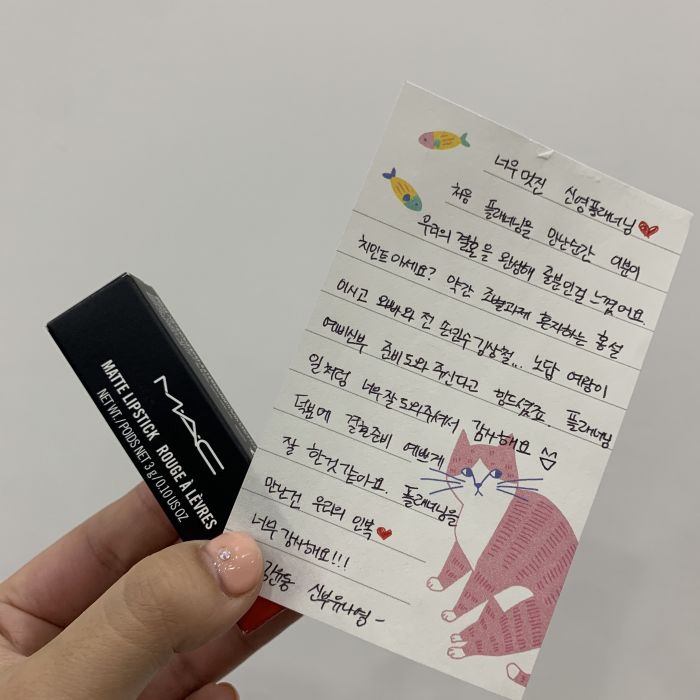 너무 멋진 신영플래너님
처음 플래너님을 만난순간 이분이
우리의 결혼을 완성해 줄분인걸 느꼈어요.
치인트 아세요? 약간 조별과제 혼자하는 홍설
이시고 오빠와 전 손민수 김상철... 노답 예랑이
예비신부 준비 도와주신다고 힘드셨죠. 플래너님
일처럼 너무 잘 도와주셔서 감사해요
덕분에 결혼준비 예쁘게
잘 한것 같아요. 플래너님을
만난건 우리의 인복
너무 감사해요!!!
신부유나영-
MAC
MATTE LIPSTICK ROUGE À LÈVRES
NET WT./POIDS NET 3 g/0.10 US OZ